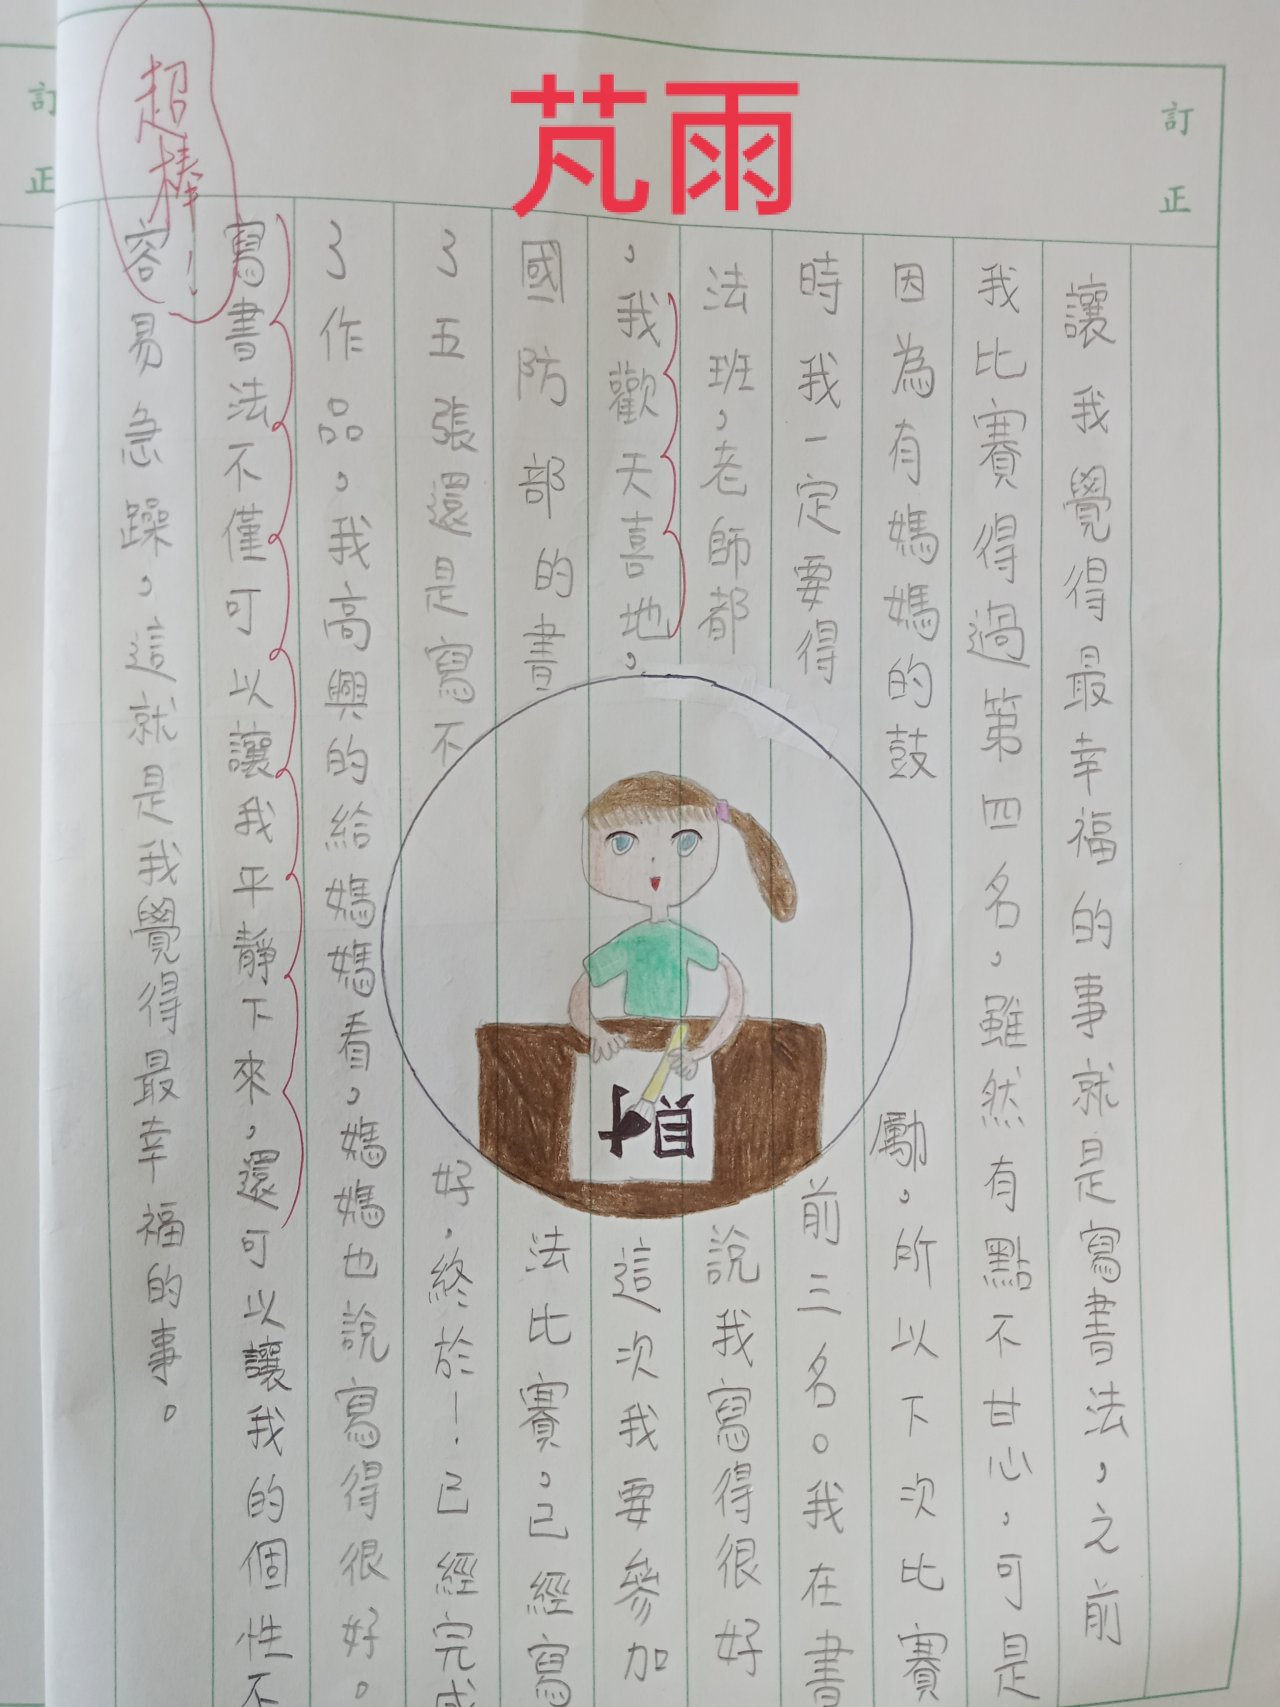 芃雨
訂正
讓我覺得最幸福的事就是寫書法，之前
我比賽得過第四名，雖然有點不甘心，可是
因為有媽媽的鼓勵，所以下次比賽
時我一定要得前三名。我在書
法班，老師都說我寫得很好
，我歡天喜地，這次我要參加
國防部的書法比賽，已經寫
了五張還是寫不好，終於！已經完成
了作品，我高興的給媽媽看，媽媽也說寫得很好。
寫書法不僅可以讓我平靜下來，還可以讓我的個性不
容易急躁，這就是我覺得最幸福的事。
超棒！
訂正